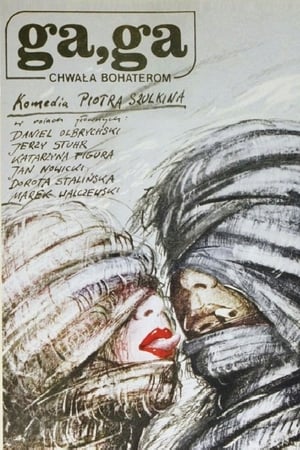 ga, ga
CHWAŁA BOHATEROM
Komedia PIOTRA SZULKINA
w rolach głównych:
DANIEL OLBRYCHSKI
JERZY STUHR
KATARZYNA FIGURA
JAN NOWICKI
DOROTA STALIŃSKA
MAREK WALCZEWSKI